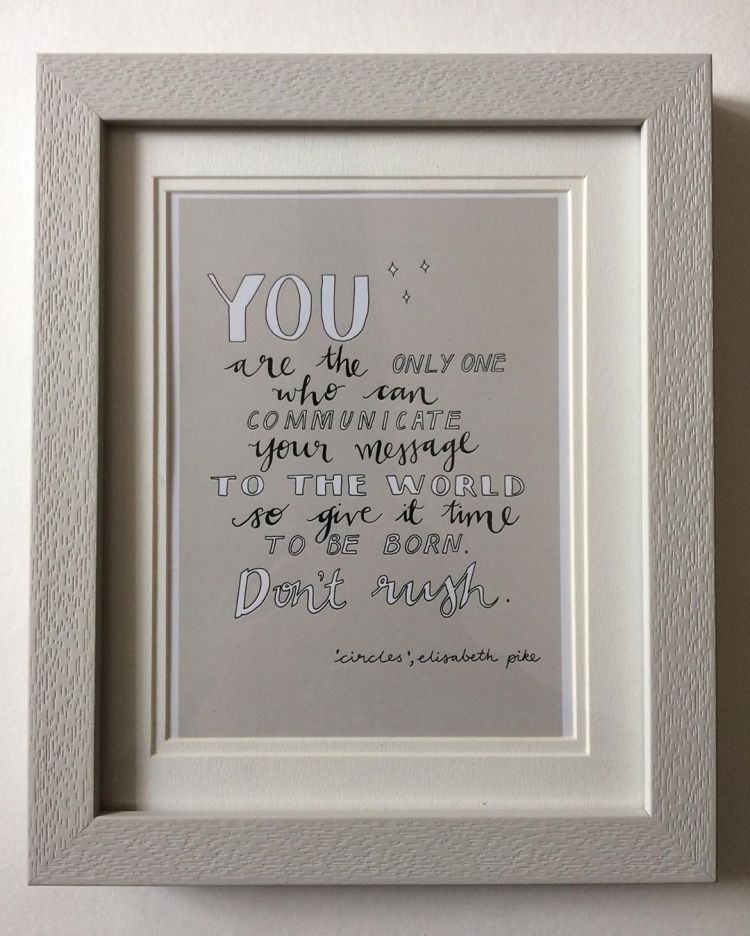 YOU
are the ONLY ONE
who can
COMMUNICATE
your message
TO THE WORLD
so give it time
TO BE BORN.
Don't rush.
'circles', elisabeth pike